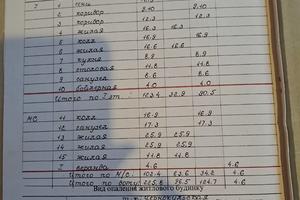 I 1 сени
2 коридор 2.10 2.10
3 коридор 12.3 12.3
4 жилая 16.3 16.3
5 холл 16.9 16.9
6 жилая 16.6 16.6
7 кухня 8.9 8.9
8 столовая 11.8 11.8
9 санузел 8.6 8.6
10 бойлерная 4.0 4.0
Итого по I эт. 123.4 32.9 90.5
М/С 11 холл 16.9 16.9
12 санузел 17.3 17.3
13 жилая 25.9 25.9
14 жилая 25.9 25.9
15 жилая 11.8 11.8
2 веранда 4.6 4.6
Итого по М/С 102.4 63.6 34.2 4.6
Итого по дому 225.8 96.5 124.7 4.6
Вид опалення житлового будинку